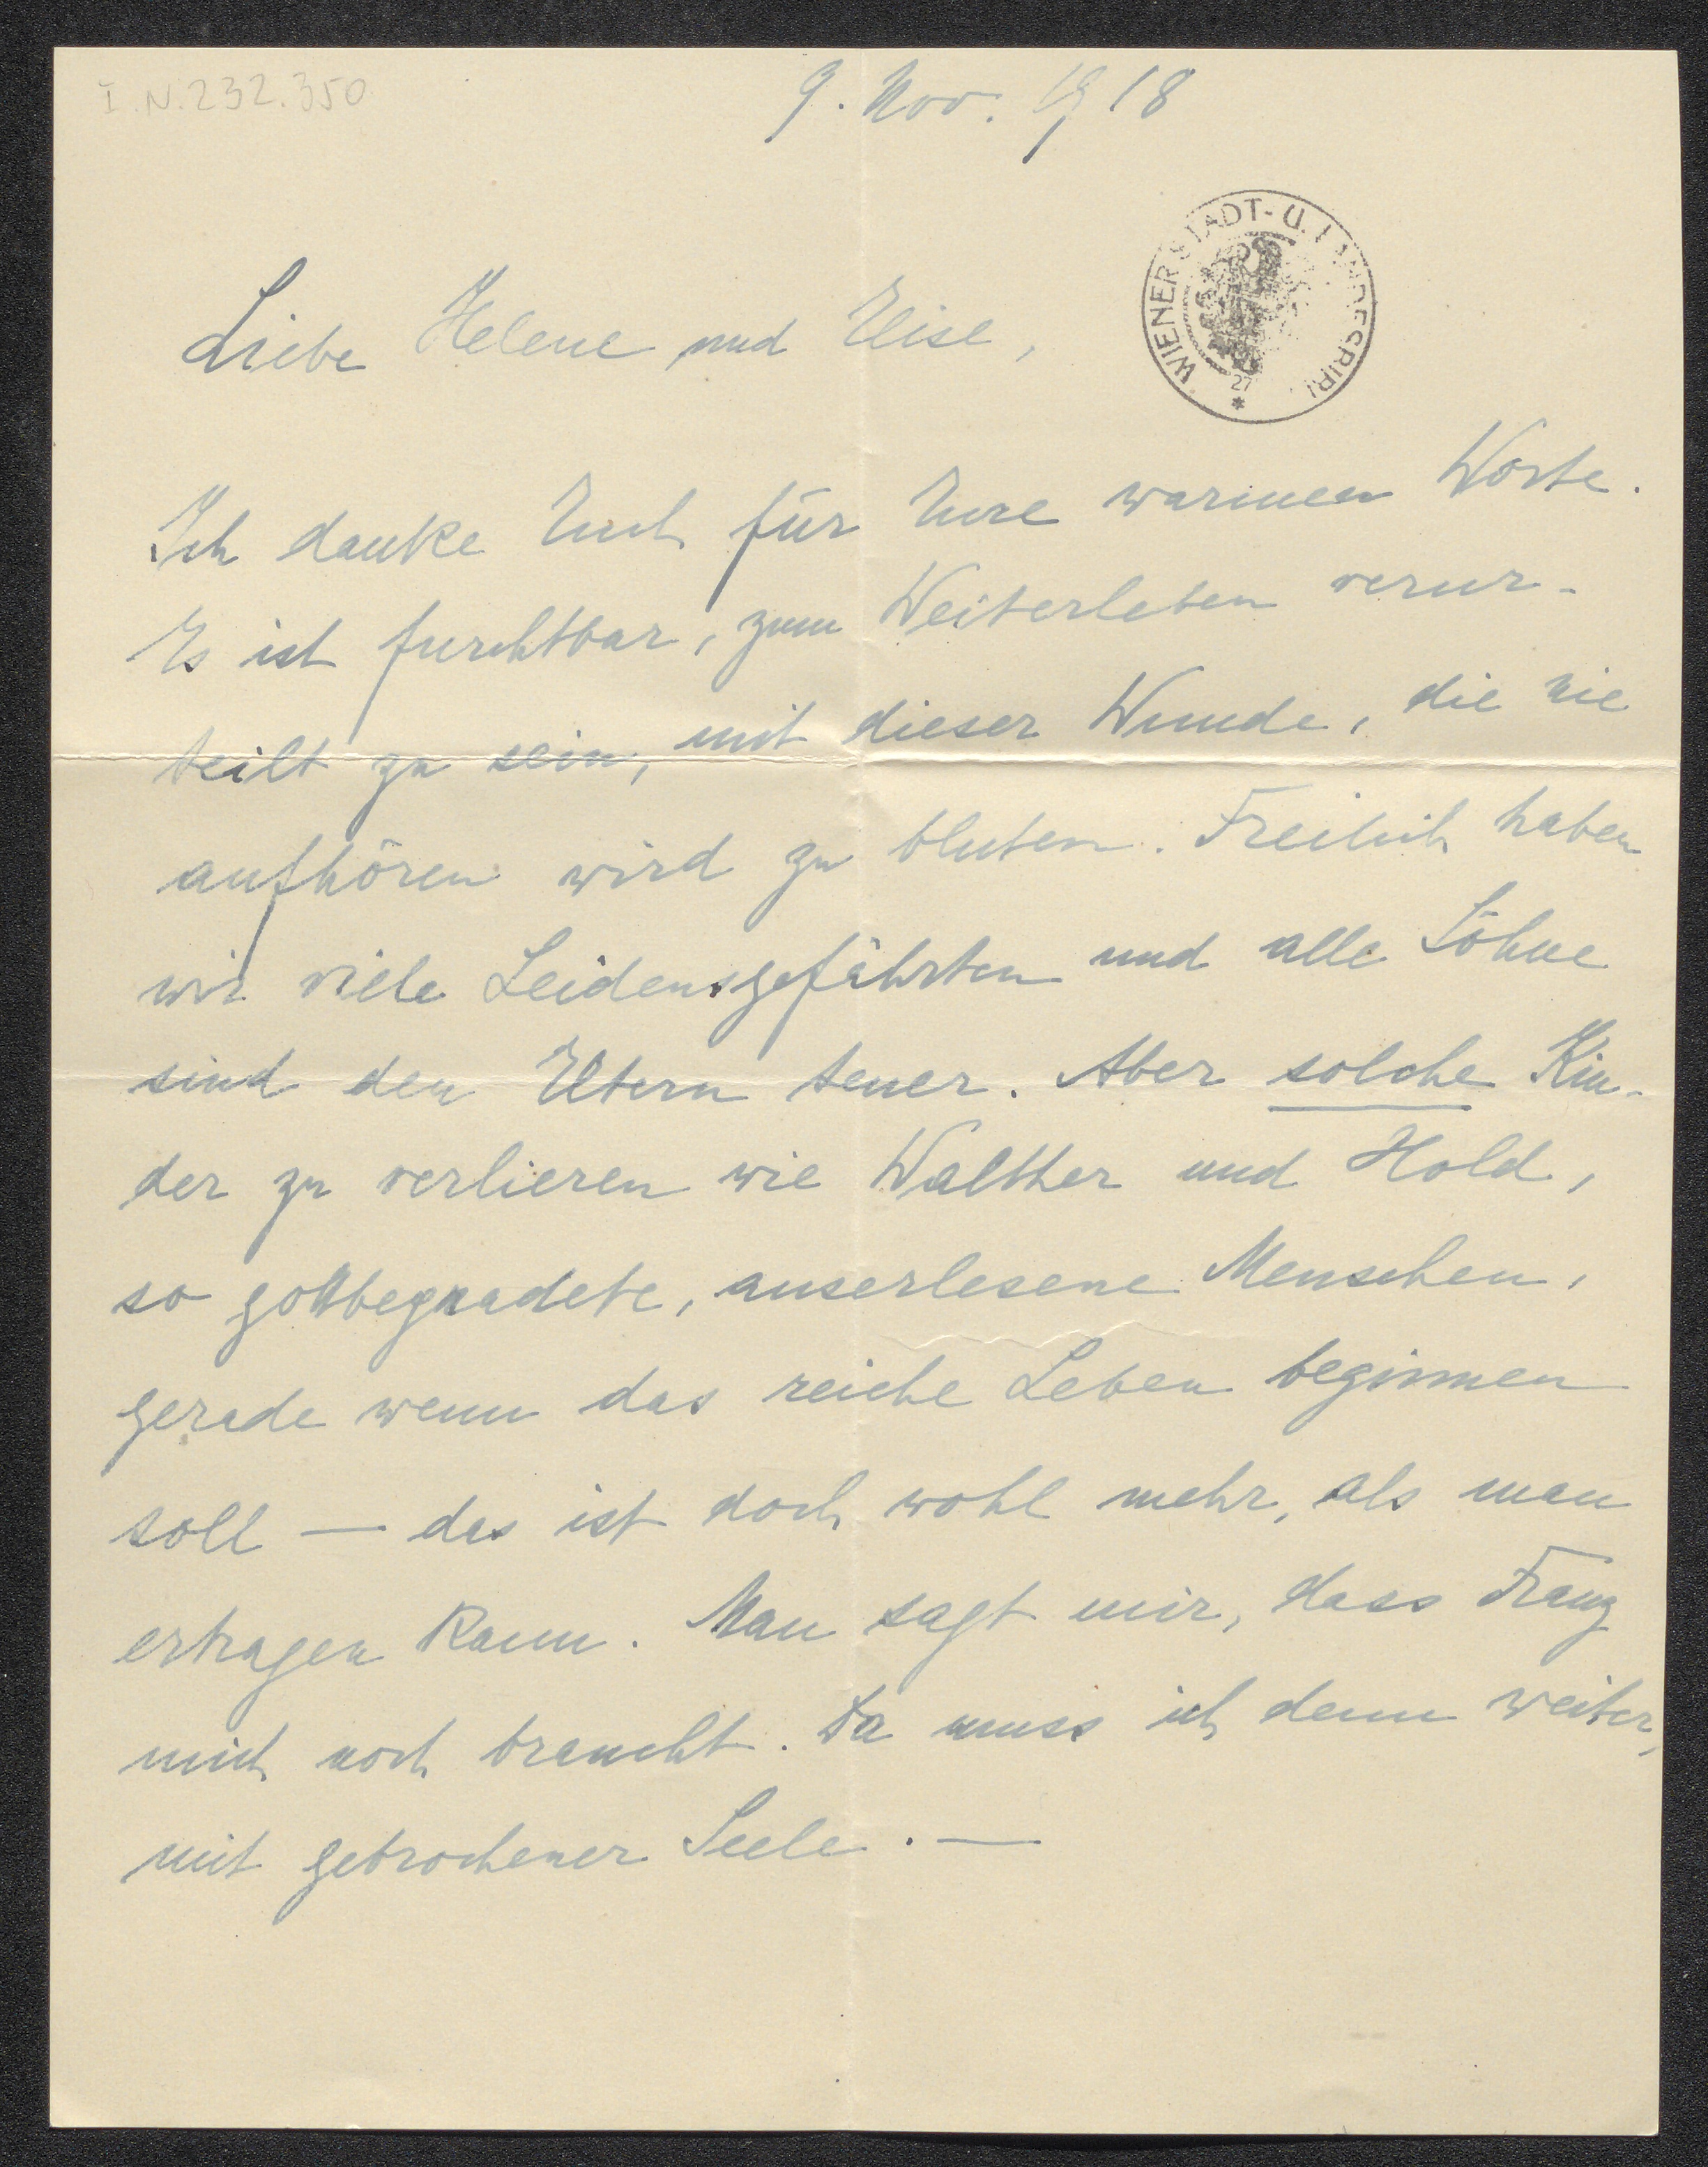 I.N.232.350
9. Nov. 1918
WIENER STADT- U. LANDESBIBL
27
Liebe Helene und Elise,
Ich danke Euch für Eure warmen Worte.
Es ist furchtbar, zum Weiterleben verur-
teilt zu sein, mit dieser Wunde, die nie
aufhören wird zu bluten. Freilich haben
wir viele Leidensgefährten und alle Söhne
sind den Eltern teuer. Aber solche Kin-
der zu verlieren wie Walther und Hold,
so gottbegnadete, auserlesene Menschen,
gerade wenn das reiche Leben beginnen
soll — das ist doch wohl mehr, als man
ertragen kann. Man sagt mir, dass Franz
mich noch braucht. Da muss ich denn weiter,
mit gebrochener Seele. —